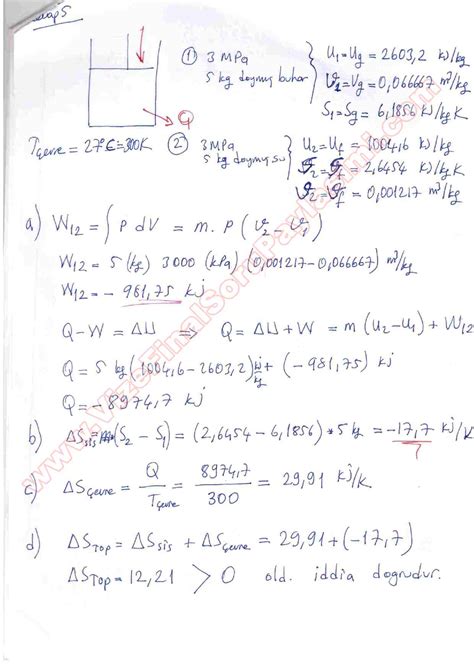 Cevap 5
① 3 MPa
5 kg doymuş buhar
U₁ = Ug = 2603,2 kJ/kg
ϑ₁ = Vg = 0,066667 m³/kg
S₁ = Sg = 6,1856 kJ/kg K
Q
Tçevre = 27°C = 300K
② 3 MPa
5 kg doymuş su
U₂ = Uf = 1004,6 kJ/kg
S₂ = Sf = 2,6454 kJ/kg K
ϑ₂ = ϑf = 0,001217 m³/kg
a) W₁₂ = ∫ P dV = m. P (ϑ₂ - ϑ₁)
W₁₂ = 5 (kg) 3000 (kPa) (0,001217-0,066667) m³/kg
W₁₂ = - 981,75 kj
Q-W = ΔU ⇒ Q = ΔU + W = m (U₂-U₁) + W₁₂
Q = 5 kg (1004,6 - 2603,2) kj/kg + (-981,75) kJ
Q = - 8974,7 kJ
b) ΔSsis = m (S₂ - S₁) = (2,6454 - 6,1856) * 5 kg = -17,7 kj/K
c) ΔSçevre = Q / Tçevre = 8974,7 / 300 = 29,91 kJ/K
d) ΔSTop = ΔSsis + ΔSçevre = 29,91 + (-17,7)
ΔSTop = 12,21 > 0 old. iddia doğrudur.
www.VizeFinalSoruPaylasimi.com